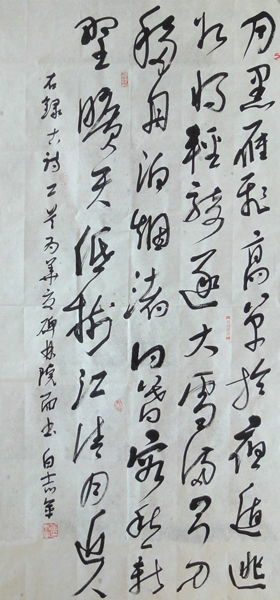 月黑雁飛高單於夜遁逃
欲將輕騎逐大雪滿弓刀
移舟泊烟渚日暮客愁新
野曠天低樹江清月近人
右錄古詩二首為華夏碑林院而書 白志